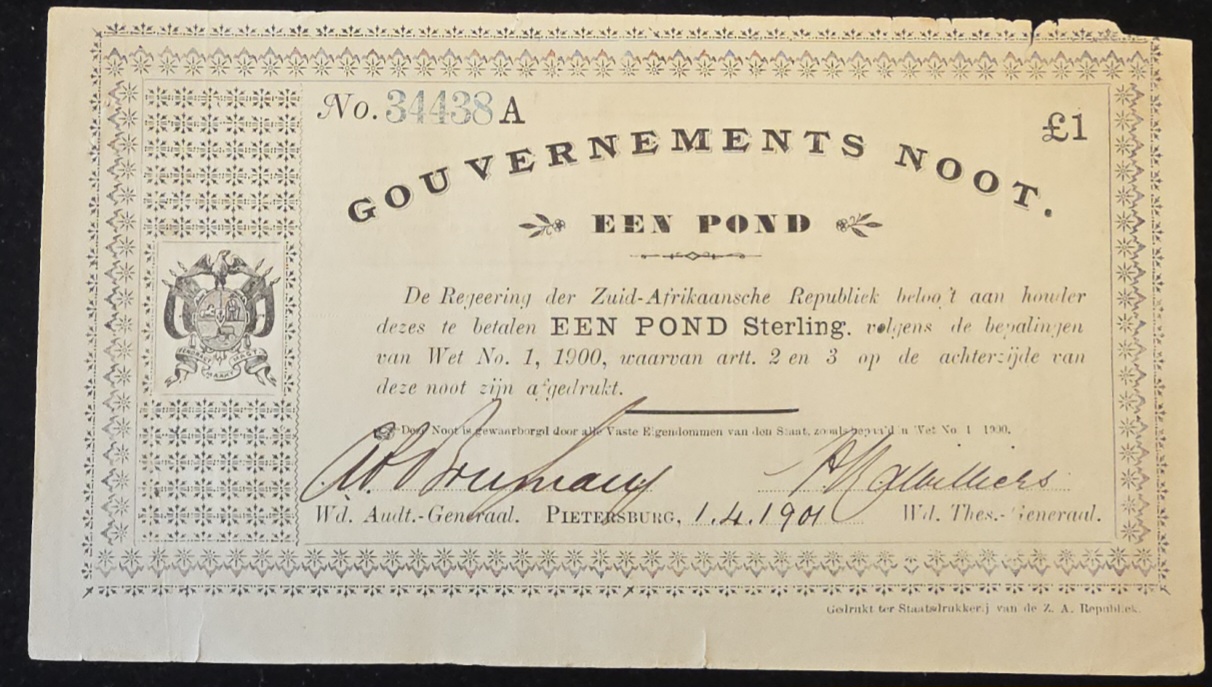 No. 34438 A
£1
GOUVERNEMENTS NOOT.
EEN POND
De Regeering der Zuid-Afrikaansche Republiek beloo't aan houder
dezes te betalen EEN POND Sterling. volgens de bepalingen
van Wet No. 1, 1900, waarvan artt. 2 en 3 op de achterzijde van
deze noot zijn afgedrukt.
Deze Noot is gewaarborgd door alle Vaste Eigendommen van den Staat, zooals bepaald in Wet No. 1 1900.
Wd. Audt.-Generaal. PIETERSBURG, 1.4.1901 Wd. Thes.-Generaal.
Gedrukt ter Staatsdrukkerij van de Z. A. Republiek.